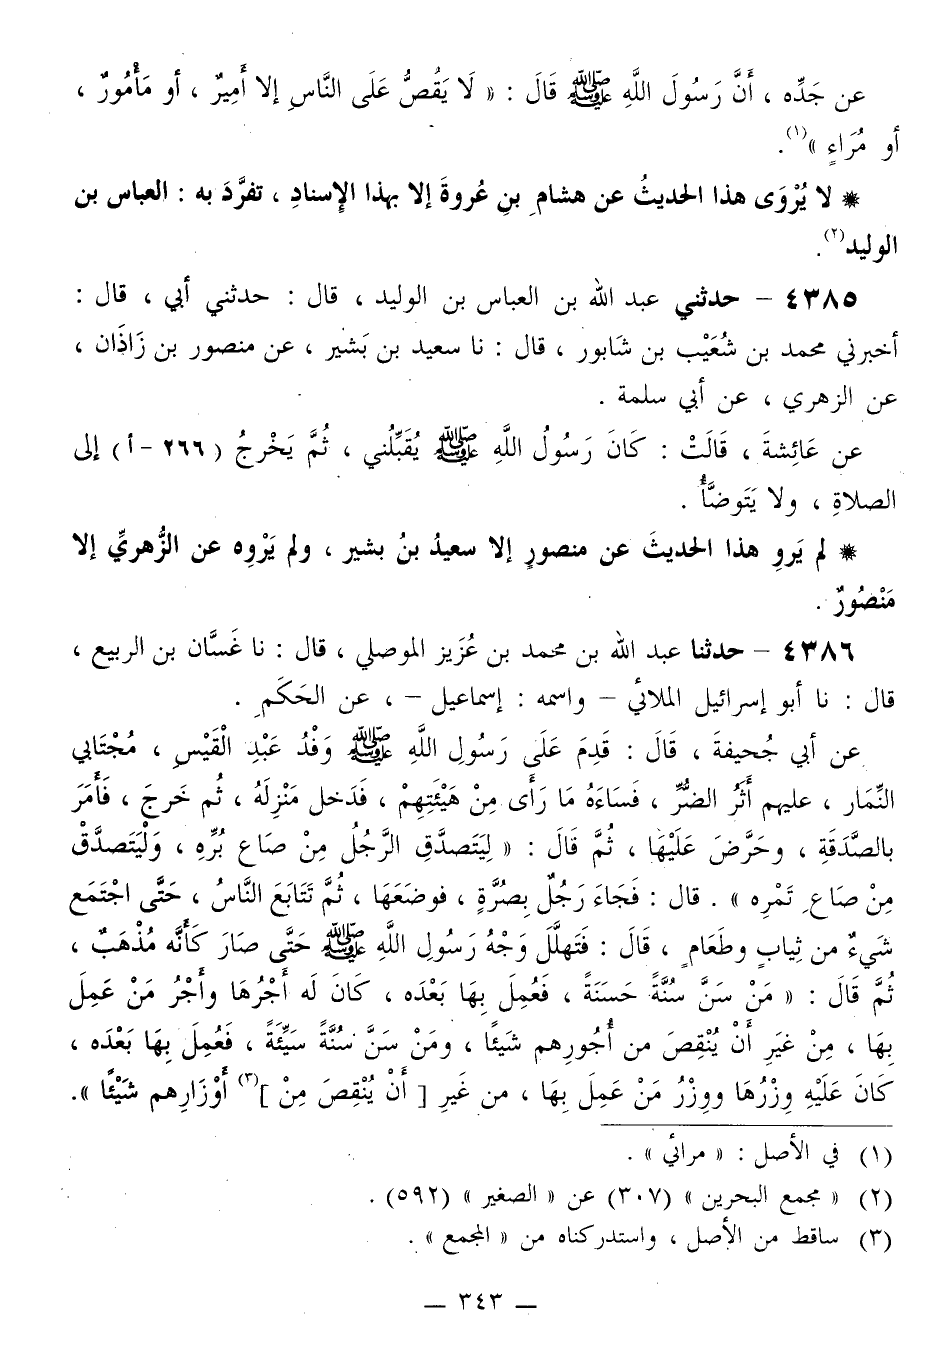 عن جَدِّه ، أَنَّ رَسُولَ اللَّهِ ﷺ قَالَ : « لَا يَقُصُّ عَلَى النَّاسِ إلا أَمِيرٌ ، أو مَأْمُورٌ ،
أو مُرَاءٍ »(١).
* لا يُرْوَى هذا الحديثُ عن هشامِ بنِ عُروةَ إلا بهذا الإِسنادِ ، تفرَّدَ به : العباس بن
الوليد(٢).
٤٣٨٥ - حدثني عبد الله بن العباس بن الوليد ، قال : حدثني أبي ، قال :
أخبرني محمد بن شُعَيْب بن شَابور ، قال : نا سعيد بن بَشير ، عن منصور بن زَاذَان ،
عن الزهري ، عن أبي سلمة .
عن عَائِشةَ ، قَالَتْ : كَانَ رَسُولُ اللَّهِ ﷺ يُقَبِّلُني ، ثُمَّ يَخْرجُ ( ٢٦٦ - أ ) إلى
الصلاةِ ، ولا يَتَوضَّأُ .
* لم يَروِ هذا الحديثَ عن منصورٍ إلا سعيدُ بنُ بشير ، ولم يَرْوِه عن الزُّهريِّ إلا
مَنْصُورٌ .
٤٣٨٦ - حدثنا عبد الله بن محمد بن عُزَيز الموصلي ، قال : نا غَسَّان بن الربيع ،
قال : نا أبو إسرائيل الملائي - واسمه : إسماعيل - ، عن الحَكَمِ .
عن أبي جُحيفةَ ، قَالَ : قَدِمَ عَلَى رَسُولِ اللَّهِ ﷺ وَفْدُ عَبْدِ الْقَيْسِ ، مُجْتَابي
النِّمَار ، عليهم أَثَرُ الضُّرِّ ، فَسَاءَهُ مَا رَأَى مِنْ هَيْئَتِهِمْ ، فَدَخل مَنْزِلَهُ ، ثُم خَرجَ ، فَأَمَرَ
بالصَّدَقَةِ ، وحَرَّضَ عَلَيْهَا ، ثُمَّ قَالَ : « لِيَتَصدَّقِ الرَّجُلُ مِنْ صَاعِ بُرِّهِ ، وَلْيَتَصدَّقْ
مِنْ صَاعِ تَمْرِه » . قال : فَجَاءَ رَجُلٌ بِصُرَّةٍ ، فوضَعَهَا ، ثُمَّ تَتَابَعَ النَّاسُ ، حَتَّى اجْتَمَع
شَيءٌ من ثِيابٍ وطَعَامٍ ، قَالَ : فَتَهلَّلَ وَجْهُ رَسُولِ اللَّهِ ﷺ حَتَّى صَارَ كَأَنَّه مُذْهَبٌ ،
ثُمَّ قَالَ : « مَنْ سَنَّ سُنَّةً حَسَنَةً ، فَعُمِلَ بِهَا بَعْدَه ، كَانَ لَه أَجْرُهَا وأَجْرُ مَنْ عَمِلَ
بِهَا ، مِنْ غَيَرِ أَنْ يُنْقِصَ من أُجُورِهم شَيئًا ، ومَنْ سَنَّ سُنَّةً سَيِّئَةً ، فَعُمِلَ بِهَا بَعْدَه ،
كَانَ عَلَيْهِ وِزْرُهَا ووِزْرُ مَنْ عَمِلَ بِهَا ، من غَيرِ [ أَنْ يُنْقِصَ مِنْ ](٣) أَوْزَارِهم شَيْئًا ».
(١) في الأصل : « مرائي » .
(٢) « مجمع البحرين » (٣٠٧) عن « الصغير » (٥٩٢) .
(٣) ساقط من الأصل ، واستدركناه من « المجمع » .
— ٣٤٣ —